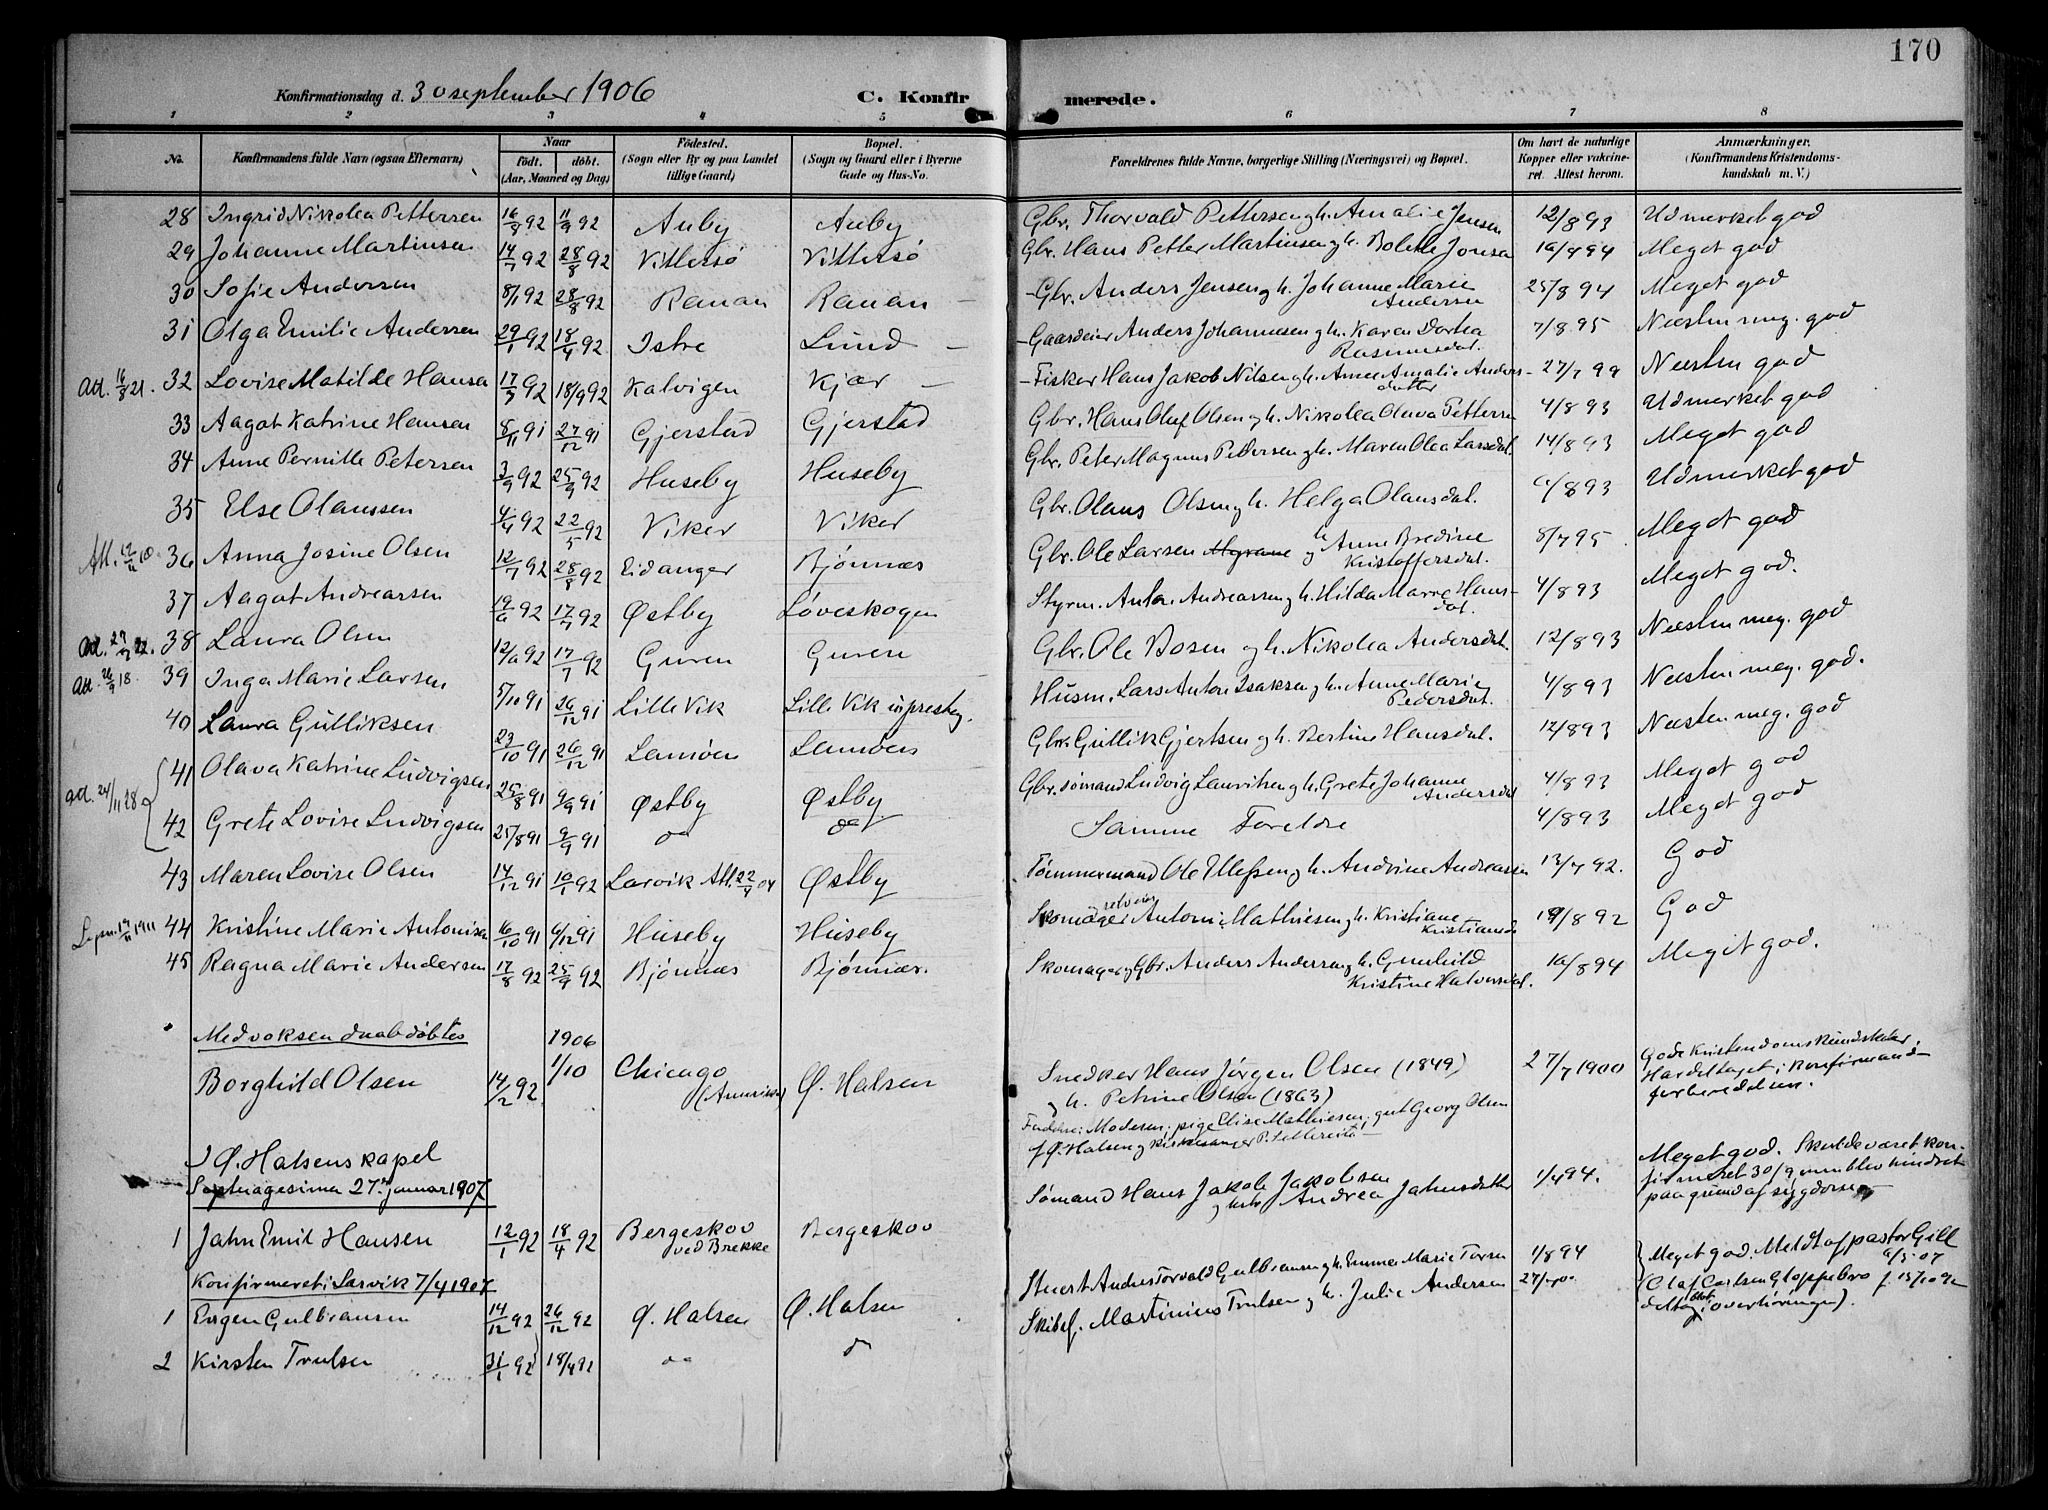 170
Konfirmationsdag d. 30 september 1906
C. Konfirmerede.
1 2 3 4 5 6 7 8
No. Konfirmandens fulde Navn (ogsaa Efternavn) Naar født. døbt. (Aar, Maaned og Dag) Fødested. (Sogn eller By og paa Landet tillige Gaard) Bopæl. (Sogn og Gaard eller i Byerne Gade og Hus-No. Forældrenes fulde Navne, borgerlige Stilling (Næringsvei) og Bopæl. Om havt de naturlige Kopper eller vakcineret. Attest herom. Anmærkninger. (Konfirmandens Kristendomskundskab m. V.)
28 Ingrid Nikolea Pettersen 16/8 92 11/9 92 Auby Auby Gbr. Thorvald Pettersen og h. Amalie Jensen 12/8 93 Udmerket god
29 Johanne Martinsen 14/7 92 28/8 92 Vittersø Vittersø Gbr. Hans Petter Martinsen og h. Bolette Jonsen 10/8 94 Meget god
30 Sofie Andersen 8/1 92 28/8 92 Ranan Ranan – – Gbr. Anders Jensen og h. Johanne Marie Andersen 25/8 94 Meget god
31 Olga Emilie Andersen 29/1 92 18/4 92 Istre Lund – – Gaardeier Anders Johannesen og h. Karen Dortea Rasmusdat. 7/8 95 Næsten meg. god
Att. 16/8 21. 32 Lovise Matilde Hansen 17/7 92 18/9 92 Kalvigen Kjær – – Fisker Hans Jakob Nilsen og h. Anne Amalie Andersdatter 27/7 99 Næsten god
33 Aagot Katrine Hansen 8/11 91 27/12 91 Gjerstad Gjerstad Gbr. Hans Oluf Olsen og h. Nikolea Olava Pettersen 4/8 93 Udmerket god
34 Anne Pernille Petersen 3/9 92 25/9 92 Huseby Huseby Gbr. Peter Magnus Pedersen og h. Maren Olea Larsdat. 14/8 93 Meget god
35 Else Olanssen 4/4 92 22/5 92 Viker Viker Gbr. Olaus Olsen og h. Helga Olausdat. /8 93 Udmerket god
Att. 36 Anna Josine Olsen 12/7 92 28/8 92 Eidanger Bjønnæs Gbr. Ole Larsen Myrane og h Anne Bredine Kristoffersdat. 8/7 95 Meget god
37 Aagot Andreassen 19/6 92 17/7 92 Østby Løveskogen Styrm. Anton Andreassen og h. Hilda Marre Hansdat. 4/8 93 Meget god.
Att. 38 Laura Olsen 12/ 92 17/7 92 Guren Guren Gbr. Ole Bosen og h. Nikolea Andersdat. 12/8 93 Næsten meg. god
Att. 26/9 18. 39 Inga Marie Larsen 5/10 91 26/12 91 Lille Vik Lille Vik Husm. Lars Anton Isaksen og h. Anne Marie Pedersdat. 4/8 93 Næsten meg. god.
40 Laura Gulliksen 23/10 91 26/12 91 Lamøen Lamøen Gbr. Gullik Gjertsen og h. Bertine Hansdat. 12/8 93 Næsten meg. god
att. 24/11 28 41 Olava Katrine Ludvigsen 25/8 91 9/9 91 Østby Østby Gbr. sømand Ludvig Lauritsen og h. Grete Johanne Andersdat 4/8 93 Meget god
42 Grete Lovise Ludvigsen 25/8 91 9/9 91 do do Samme Foreldre 4/8 93 Meget god
43 Maren Lovise Olsen 14/12 91 10/1 92 Larvik Att. 22/9 04 Østby Tømmermand Ole Ellefsen og h. Andrine Andreassen 13/7 92. God
44 Kristine Marie Antonisen 16/10 91 6/12 91 Huseby Huseby Skomager Antoni Mathiesen og h. Kristiane Kristiansd 19/8 92 God
45 Ragna Marie Andersen 17/8 92 25/9 92 Bjønnæs Bjønnæs. Skomager og Gbr. Anders Andersen og h. Gunhild Kristine Halvorsdat. 10/8 94 Meget god.
Med voksen daab døbtes 1906
Borghild Olsen 14/2 92 1/10 Chicago (Amerika) Ø. Halsen Snedker Hans Jørgen Olsen (1849) og h. Petrine Olsen (1863) 27/7 1900 Gode Kristendomskundskaber. Har deltaget i konfirmandforberedelsen.
Faddere: Moderen, pige Elise Mathiesen, gut Georg Olsen
f Ø. Halsen og kirkesanger P.
I Ø. Halsens kapel
Septuagesima 27. januar 1907
1 Jahn Emil Hansen 12/1 92 18/4 92 Bergeskov ved Brekke Bergeskov Sømand Hans Jakob Jakobsen og h Andrea Jahnsdatter 1/4 94. Meget god. Skulde været konfirmeret 30/9 men blev hindret paa grund af sygdom
Konfirmeret i Larvik 7/4 1907
1 Eugen Gulbransen 14/12 92 26/12 92 Ø. Halsen Ø. Halsen Stuert Anders Torvald Gulbransen og h. Emma Marie Torsen 1/8 94 Meget god. Meldt af pastor Gill 6/5 07
2 Kirsten Trulsen 31/1 92 18/4 92 do do Skibsf. Martinius Trulsen og h. Julie Andersen 27/ (Olaf Carlsen Gloppebro f. 15/10 92 deltog i overhøringen).